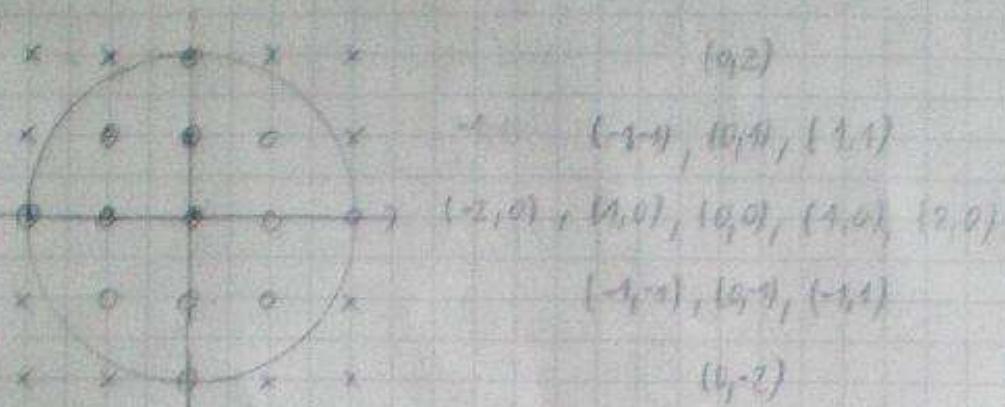 (0,2)
(-1,-1), (0,1), (-1,1)
(-2,0), (1,0), (0,0), (1,0), (2,0)
(-1,-1), (0,-1), (-1,1)
(0,-2)